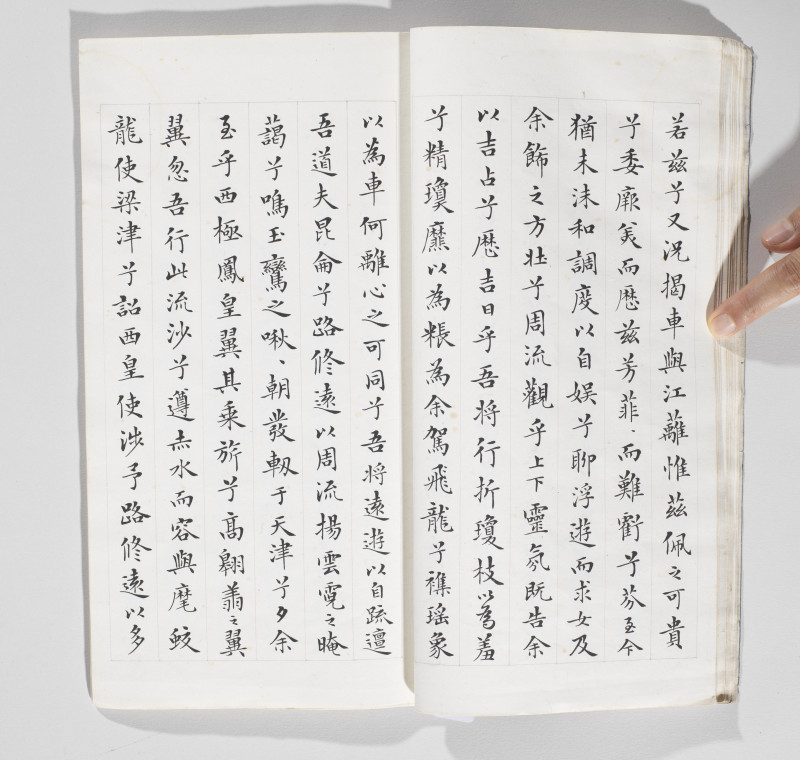 若茲兮又況揭車與江蘺惟茲佩之可貴
兮委厥美而歷茲芳菲〻而難虧兮芬至今
猶未沬和調度以自娛兮聊浮遊而求女及
余飾之方壯兮周流觀乎上下靈氛既告余
以吉占兮歷吉日乎吾將行折瓊枝以為羞
兮精瓊爢以為粻為余駕飛龍兮襍瑤象
以為車何離心之可同兮吾將遠遊以自疏邅
吾道夫昆侖兮路修遠以周流揚雲霓之晻
藹兮鳴玉鸞之啾〻朝發軔于天津兮夕余
至乎西極鳳皇翼其乘旂兮高翱翥之翼
翼忽吾行此流沙兮遵赤水而容與麾蛟
龍使梁津兮詔西皇使涉予路修遠以多